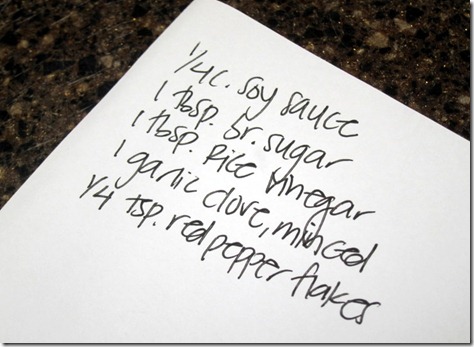 1/4 c. soy sauce
1 tbsp. br. sugar
1 tbsp. Rice vinegar
1 garlic clove, minced
1/4 tsp. red pepper flakes